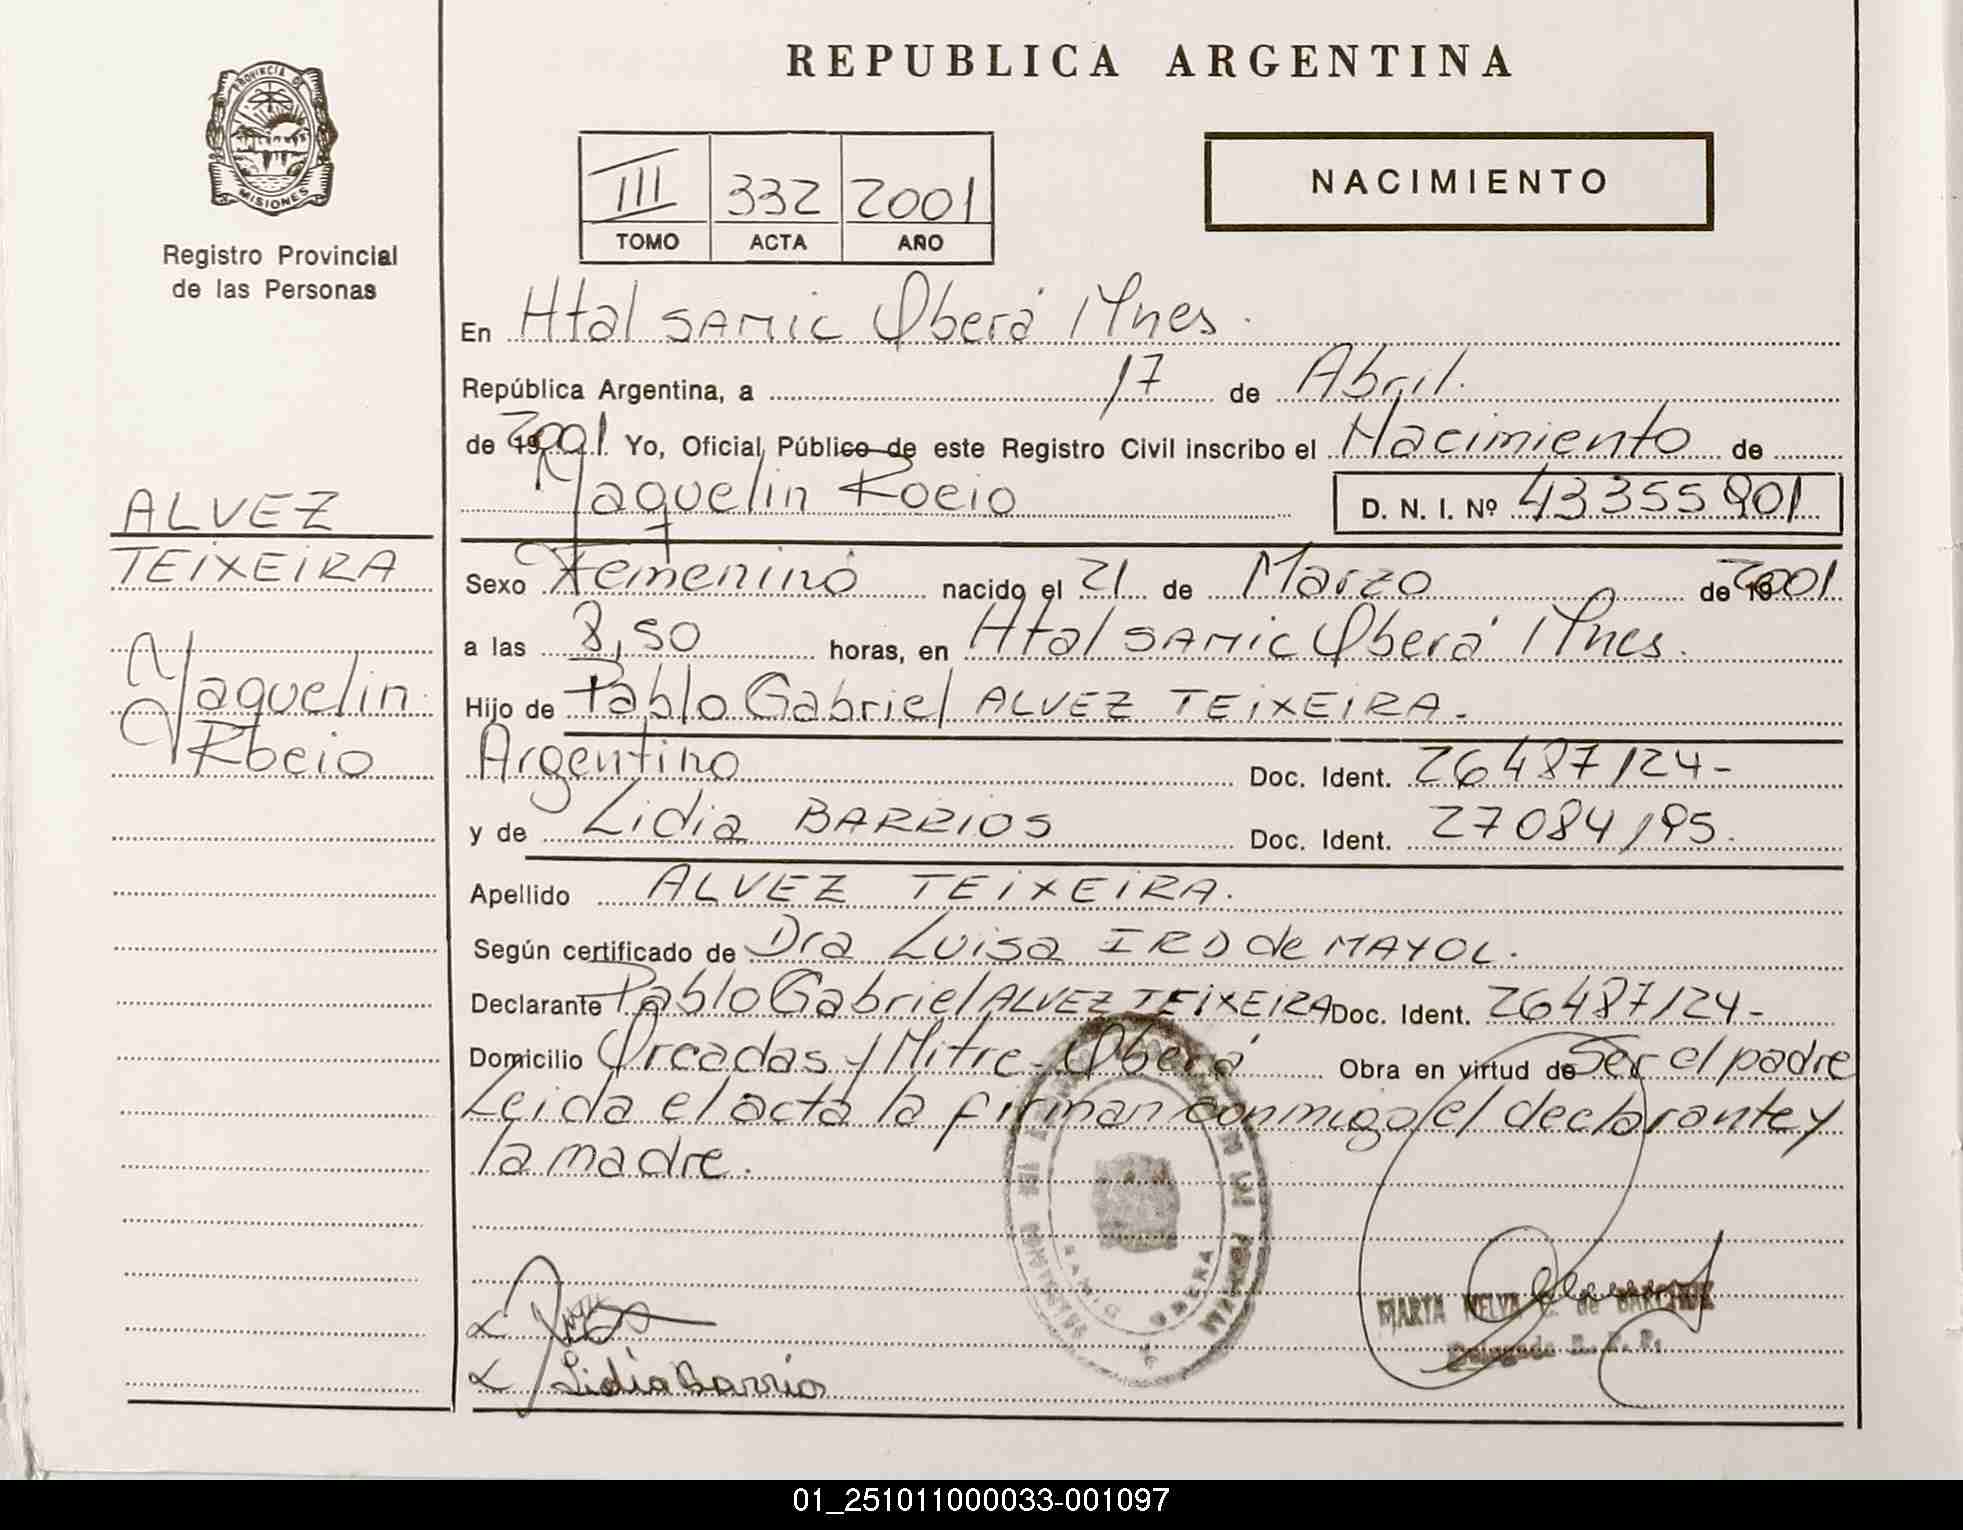 REPUBLICA ARGENTINA
PROVINCIA DE
MISIONES
Registro Provincial
de las Personas
III 332 2001
TOMO ACTA AÑO
NACIMIENTO
En Htal SAMIC Oberá Mnes.
República Argentina, a 17 de Abril.
de 2001. Yo, Oficial Público de este Registro Civil inscribo el Nacimiento de
Yaquelin Rocio D. N. I. Nº 43355901
ALVEZ
TEIXEIRA
Yaquelin
Rocio
Sexo Femenino nacido el 21 de Marzo de 2001
a las 8,50 horas, en Htal SAMIC Oberá Mnes.
Hijo de Pablo Gabriel ALVEZ TEIXEIRA.
Argentino Doc. Ident. 26487124-
y de Lidia BARRIOS Doc. Ident. 27084195.
Apellido ALVEZ TEIXEIRA.
Según certificado de Dra Luisa IRO de MAYOL.
Declarante Pablo Gabriel ALVEZ TEIXEIRA Doc. Ident. 26487124-
Domicilio Orcadas y Mitre - Oberá Obra en virtud de Ser el padre
Leida el acta la firman conmigo el declarante y
la madre.
SAMIC OBERA
MARTA de
Delegada R. P. P.
Lidia Barrio
01_251011000033-001097